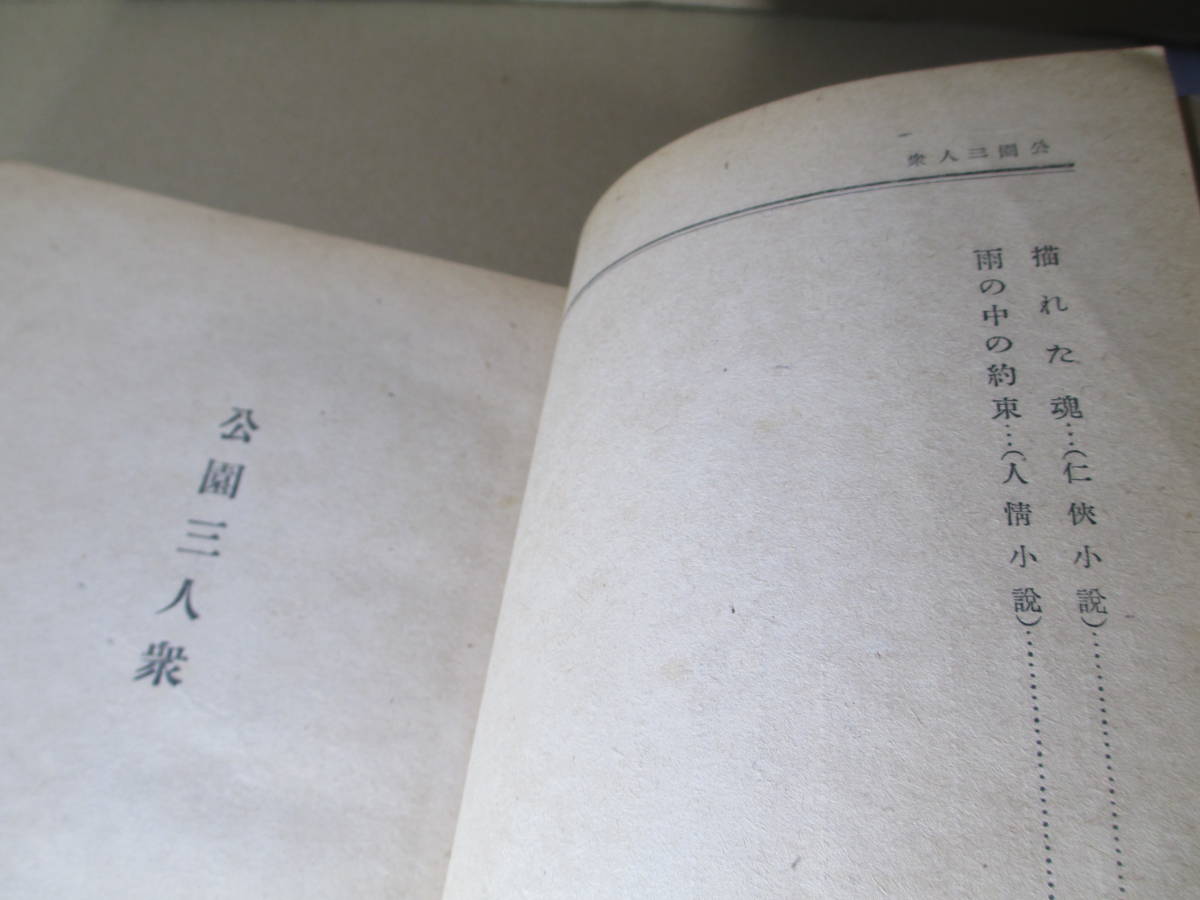 公園三人衆
描れた魂…(仁俠小說)……………
雨の中の約束…(人情小說)……………
公園三人衆